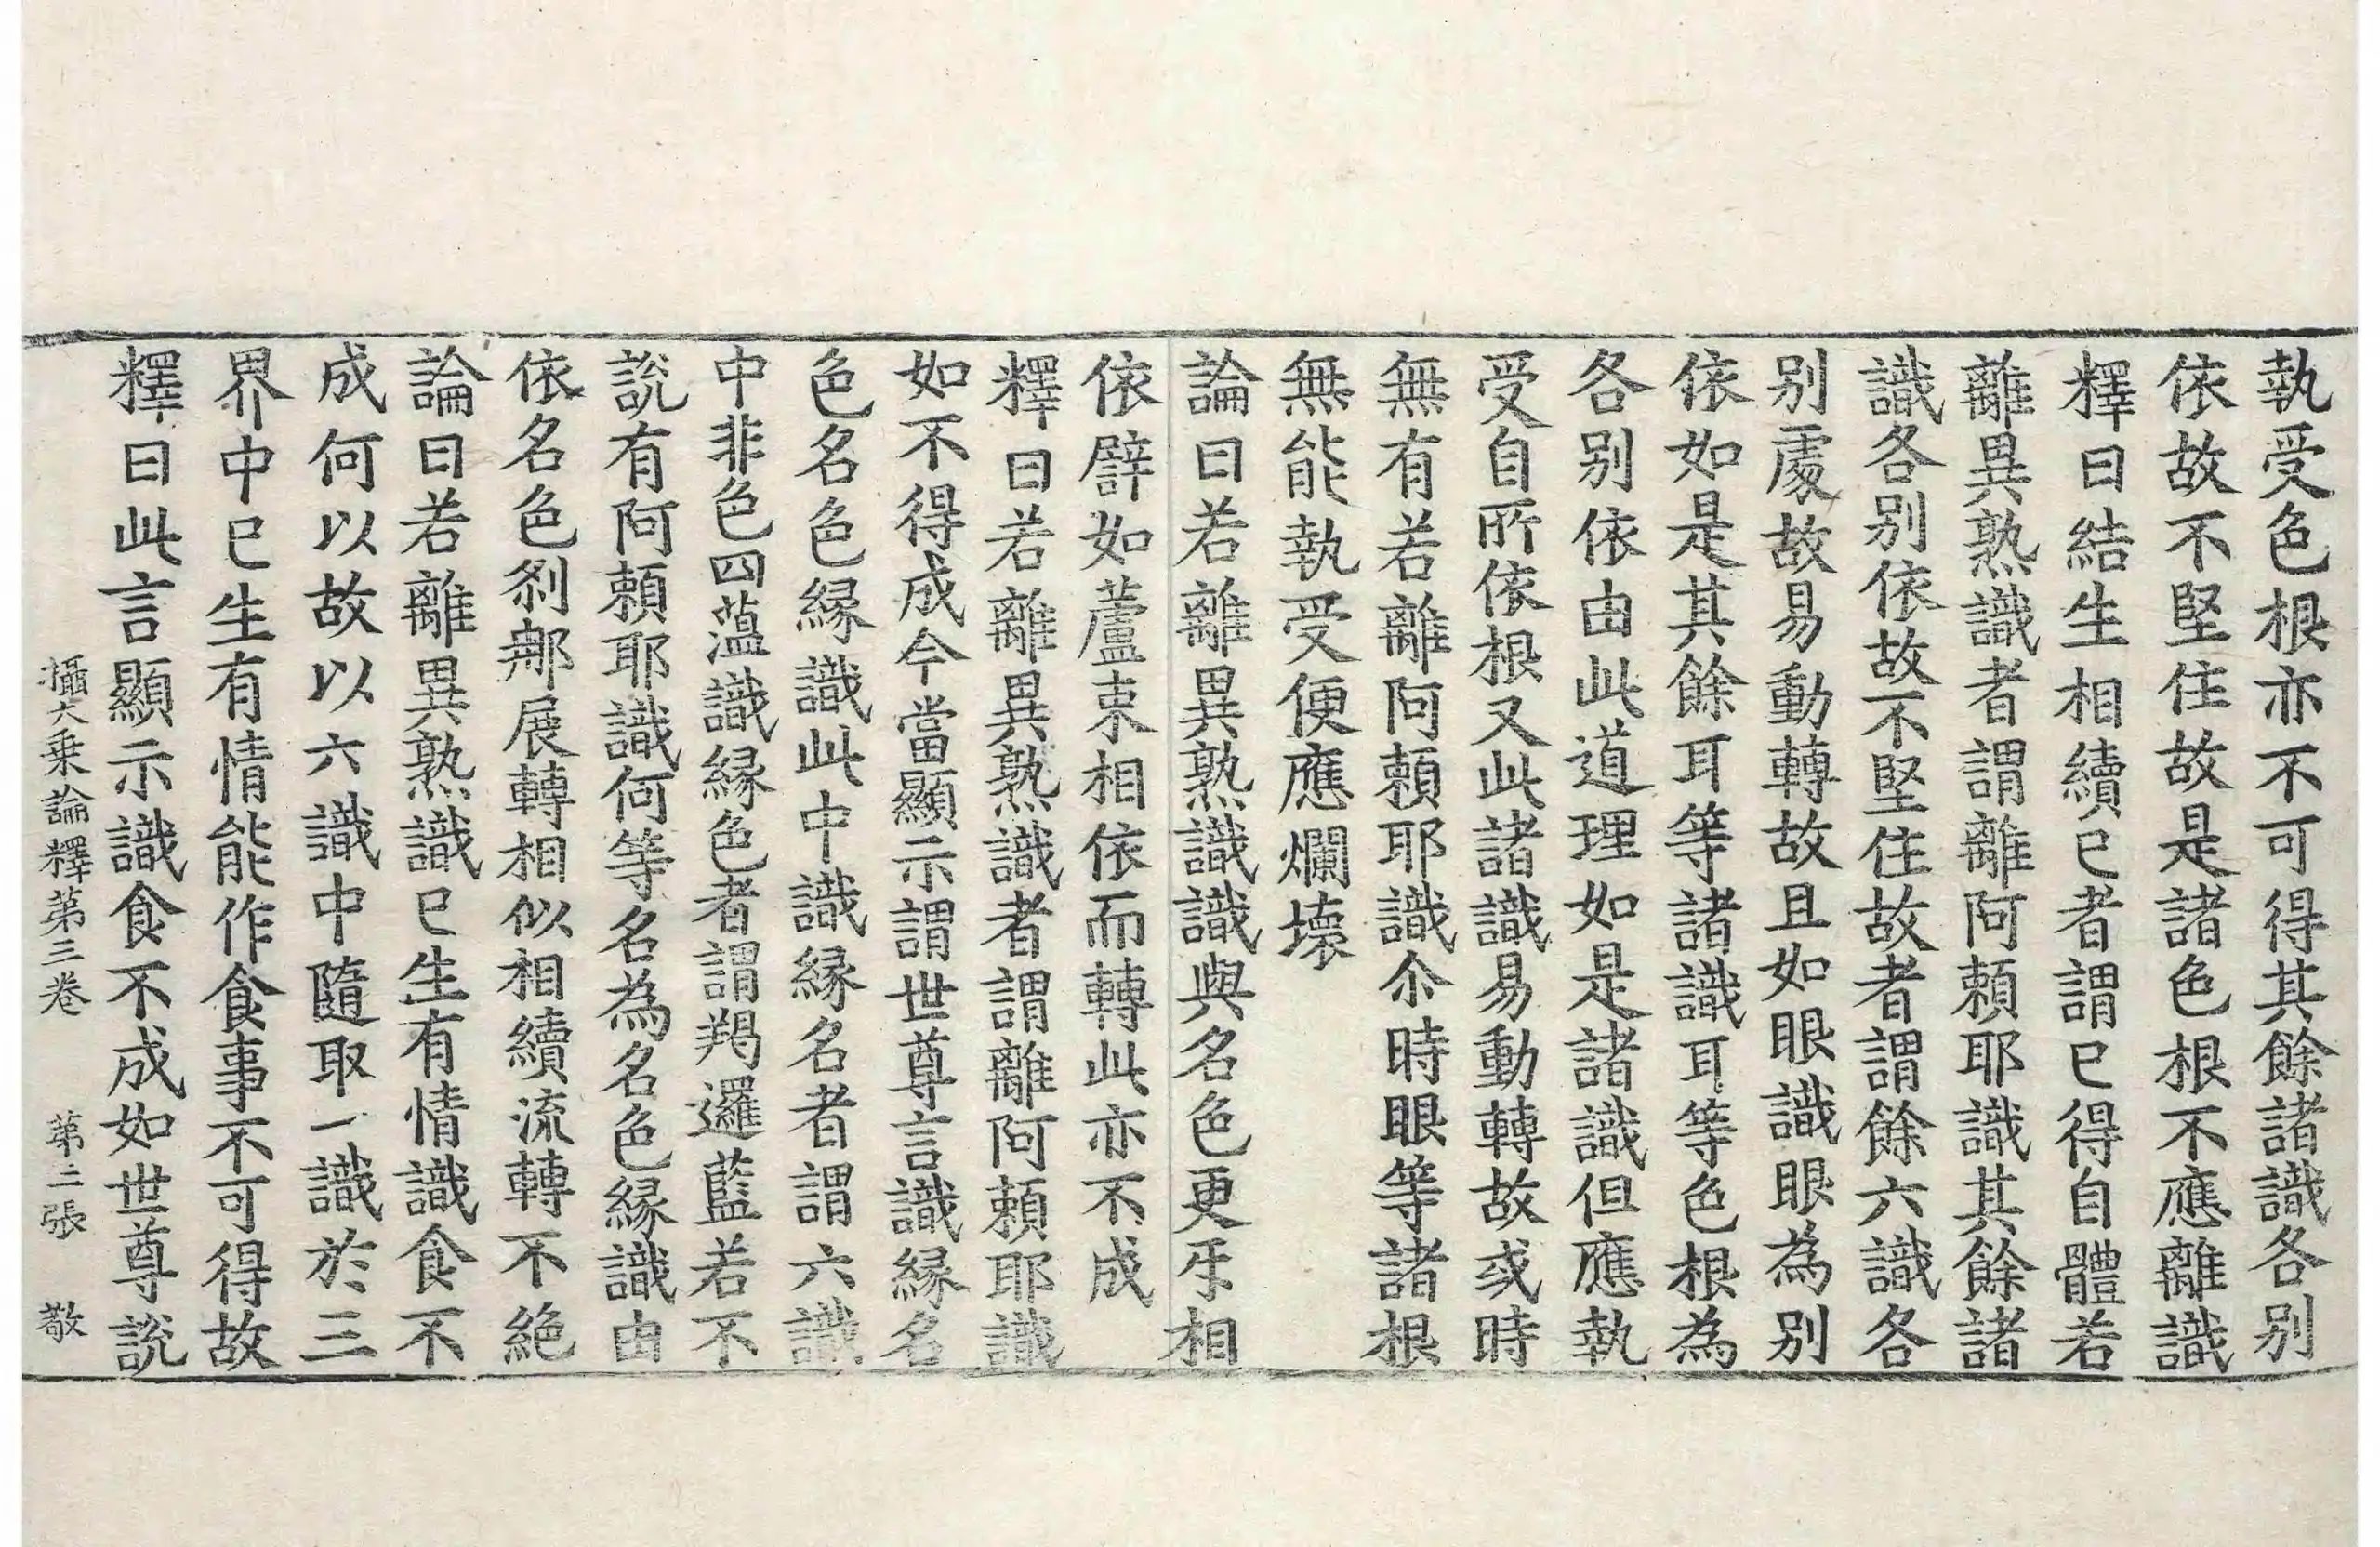 執受色根亦不可得其餘諸識各别
依故不堅住故是諸色根不應離識
釋曰結生相續已者謂已得自體若
離異熟識者謂離阿頼耶識其餘諸
識各别依故不堅住故者謂餘六識各
别處故易動轉故且如眼識眼為别
依如是其餘耳等諸識耳等色根為
各别依由此道理如是諸識但應執
受自所依根又此諸識易動轉故或時
無有若離阿頼耶識尒時眼等諸根
無能執受便應爛壞
論曰若離異熟識識與名色更牙相
依譬如蘆束相依而轉此亦不成
釋曰若離異熟識者謂離阿頼耶識
如不得成今當顯示謂世尊言識縁名
色名色縁識此中識縁名者謂六識
中非色四蕰識縁色者謂羯邏藍若不
說有阿頼耶識何等名為名色縁識由
依名色刹那展轉相似相續流轉不絶
論曰若離異熟識已生有情識食不
成何以故以六識中隨取一識於三
界中已生有情能作食事不可得故
釋曰此言顯示識食不成如世尊說
攝大乗論釋第三卷 第二張 敬